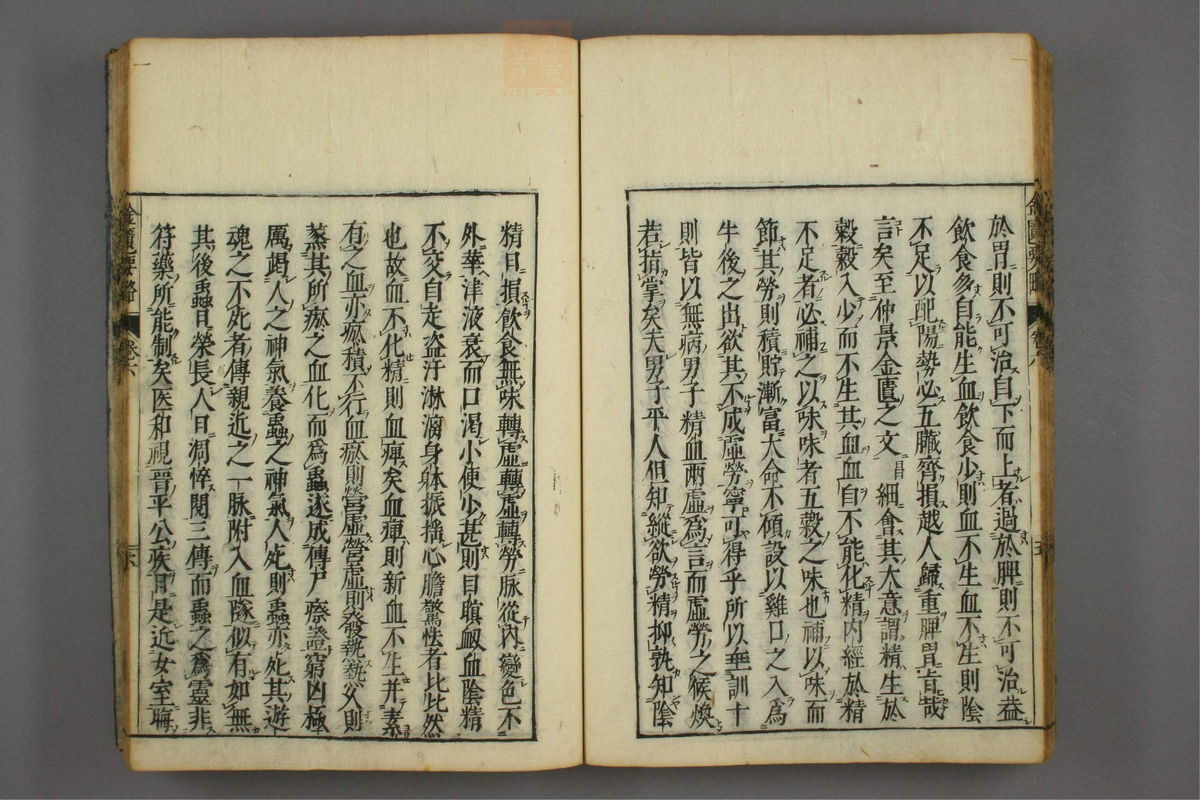 於胃則不可治自下而上者過於脾則不可治益
飲食多自能生血飲食少則血不生血不生則陰
不足以配陽勢必五臟齊損越人歸重脾胃旨哉
言矣至仲景金匱之文昌細會其大意謂精生於
穀穀入少而不生其血血自不能化精內經於精
不足者必補之以味味者五穀之味也補以味而
節其勞則積貯漸富大命不傾設以雞口之入爲
牛後之出欲其不成虛勞寧可得乎所以垂訓十
則皆以無病男子精血兩虛爲言而虛勞之候煥
若指掌矣夫男子平人但知縱欲勞精抑孰知陰
精日損飲食無味轉虛轉勞脈從內變色不
外華津液衰而口渴小便少甚則目瞑衄血陰精
不交自走盜汗淋漓身體振搖心膽驚怯者比比然
也故血不化精則血痺矣血痺則新血不生并素
有之血亦瘀積不行血瘀則營虛營虛則發熱熱久則
蒸其所瘀之血化而爲蟲遂成傳尸瘵證窮凶極
厲竭人之神氣養蟲之神氣人死則蟲亦死其遊
魂之不死者傳親近之一脉附入血隧似有如無
其後蟲日榮長人日凋悴閱三傳而蟲之爲靈非
符藥所能制矣医和視晉平公疾曰是近女室晦
金匱要略
卷六
五
金匱要略
卷六
六